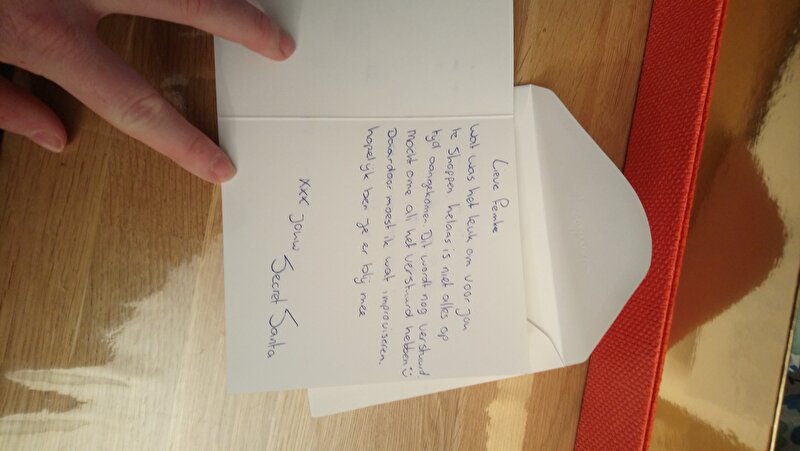 Lieve Femke
Wat was het leuk om voor jou
te shoppen helaas is niet alles op
tijd aangekomen. Dit wordt nog verstuurd!
Mocht ome ali het verstuurd hebben☺
Daardoor moest ik wat improviseren.
hopelijk ben je er blij mee
xxx jouw
Secret Santa